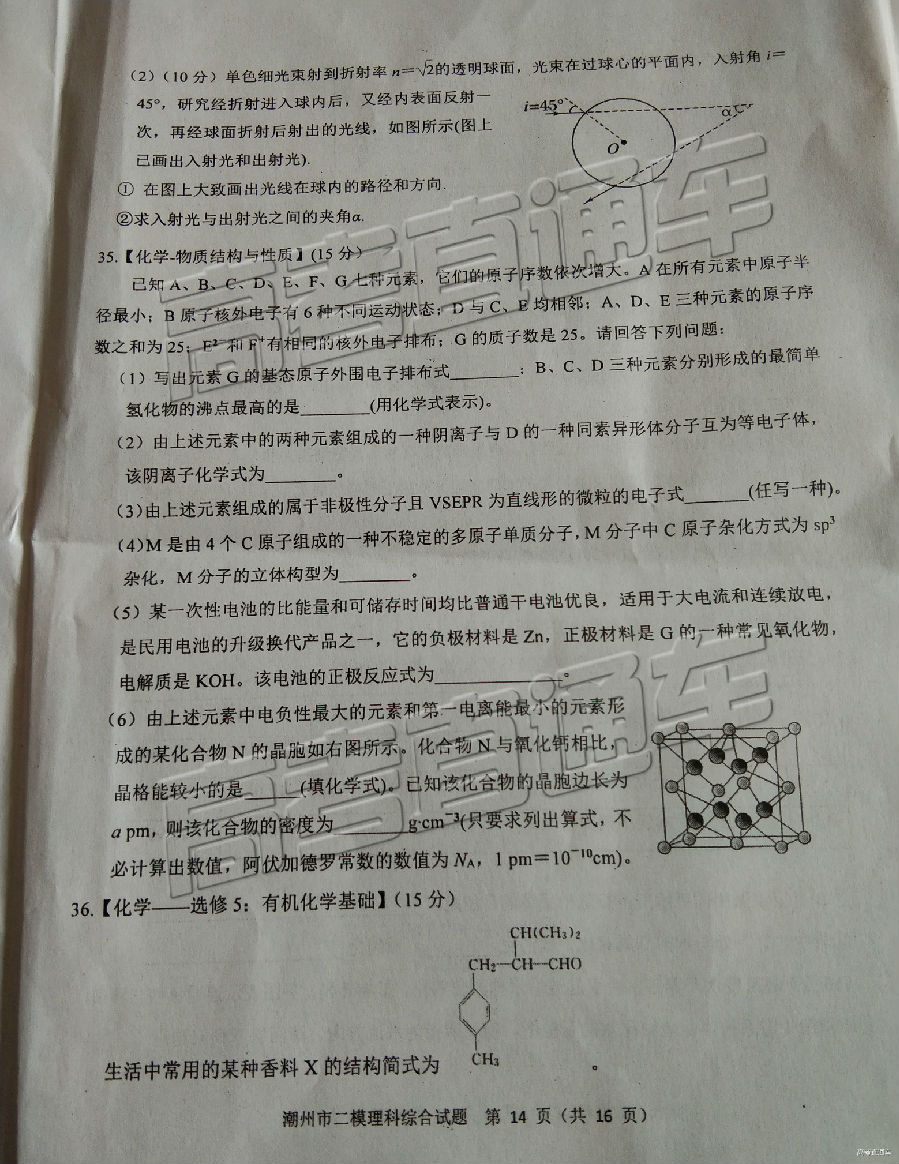 (2)(10分)单色细光束射到折射率n=√2的透明球面，光束在过球心的平面内，入射角i=
45°，研究经折射进入球内后，又经内表面反射一
次，再经球面折射后射出的光线，如图所示(图上
已画出入射光和出射光).
i=45°
α
O
① 在图上大致画出光线在球内的路径和方向.
②求入射光与出射光之间的夹角α.
35.【化学-物质结构与性质】(15分)
已知A、B、C、D、E、F、G七种元素，它们的原子序数依次增大。A在所有元素中原子半
径最小；B原子核外电子有6种不同运动状态；D与C、E均相邻；A、D、E三种元素的原子序
数之和为25；E²⁻和F⁺有相同的核外电子排布；G的质子数是25。请回答下列问题：
(1)写出元素G的基态原子外围电子排布式________；B、C、D三种元素分别形成的最简单
氢化物的沸点最高的是________(用化学式表示)。
(2)由上述元素中的两种元素组成的一种阴离子与D的一种同素异形体分子互为等电子体，
该阴离子化学式为________。
(3)由上述元素组成的属于非极性分子且VSEPR为直线形的微粒的电子式_______(任写一种)。
(4)M是由4个C原子组成的一种不稳定的多原子单质分子，M分子中C原子杂化方式为sp³
杂化，M分子的立体构型为________。
(5)某一次性电池的比能量和可储存时间均比普通干电池优良，适用于大电流和连续放电，
是民用电池的升级换代产品之一，它的负极材料是Zn，正极材料是G的一种常见氧化物，
电解质是KOH。该电池的正极反应式为______________。
(6)由上述元素中电负性最大的元素和第一电离能最小的元素形
成的某化合物N的晶胞如右图所示。化合物N与氧化钙相比，
晶格能较小的是______(填化学式)。已知该化合物的晶胞边长为
a pm，则该化合物的密度为________g·cm⁻³(只要求列出算式，不
必计算出数值，阿伏加德罗常数的数值为N_A，1 pm=10⁻¹⁰cm)。
36.【化学——选修5：有机化学基础】(15分)
CH(CH₃)₂
CH₂—CH—CHO
CH₃
生活中常用的某种香料X的结构简式为 。
潮州市二模理科综合试题 第 14 页（共 16 页）
高考直通车
高考直通车